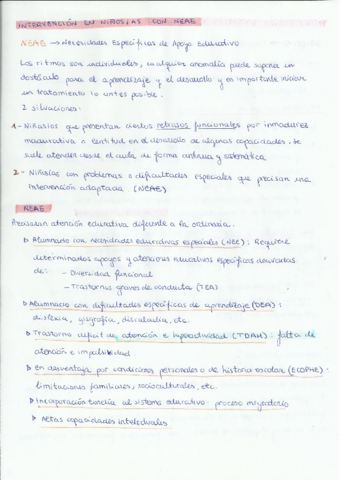 INTERVENCIÓN EN NIÑOS/AS CON NEAE
NEAE → Necesidades Específicas de Apoyo Educativo
Los ritmos son individuales, cualquier anomalía puede suponer un
obstáculo para el aprendizaje y el desarrollo y es importante iniciar
un tratamiento lo antes posible.
2 situaciones:
1- Niños/as que presentan ciertos retrasos funcionales por inmadurez
madurativa o lentitud en el desarrollo de algunas capacidades. Se
suele atender desde el aula de forma continua y sistemática
2- Niños/as con problemas o dificultades especiales que precisan una
intervención adaptada. (NEAE)
NEAE
Precisan atención educativa diferente a la ordinaria.
▷ Alumnado con necesidades educativas especiales (NEE): Requiere
determinados apoyos y atenciones educativas específicas derivadas
de: - Diversidad funcional
- Trastornos graves de conducta (TEA)
▷ Alumnado con dificultades específicas de aprendizaje (DEA):
dislexia, disgrafía, discalculia, etc.
▷ Trastorno déficit de atención e hiperactividad (TDAH): falta de
atención e impulsividad
▷ En desventaja por condiciones personales o de historia escolar (ECOPHE):
limitaciones familiares, socioculturales, etc.
▷ Incorporación tardía al sistema educativo: proceso migratorio
▷ Altas capacidades intelectuales